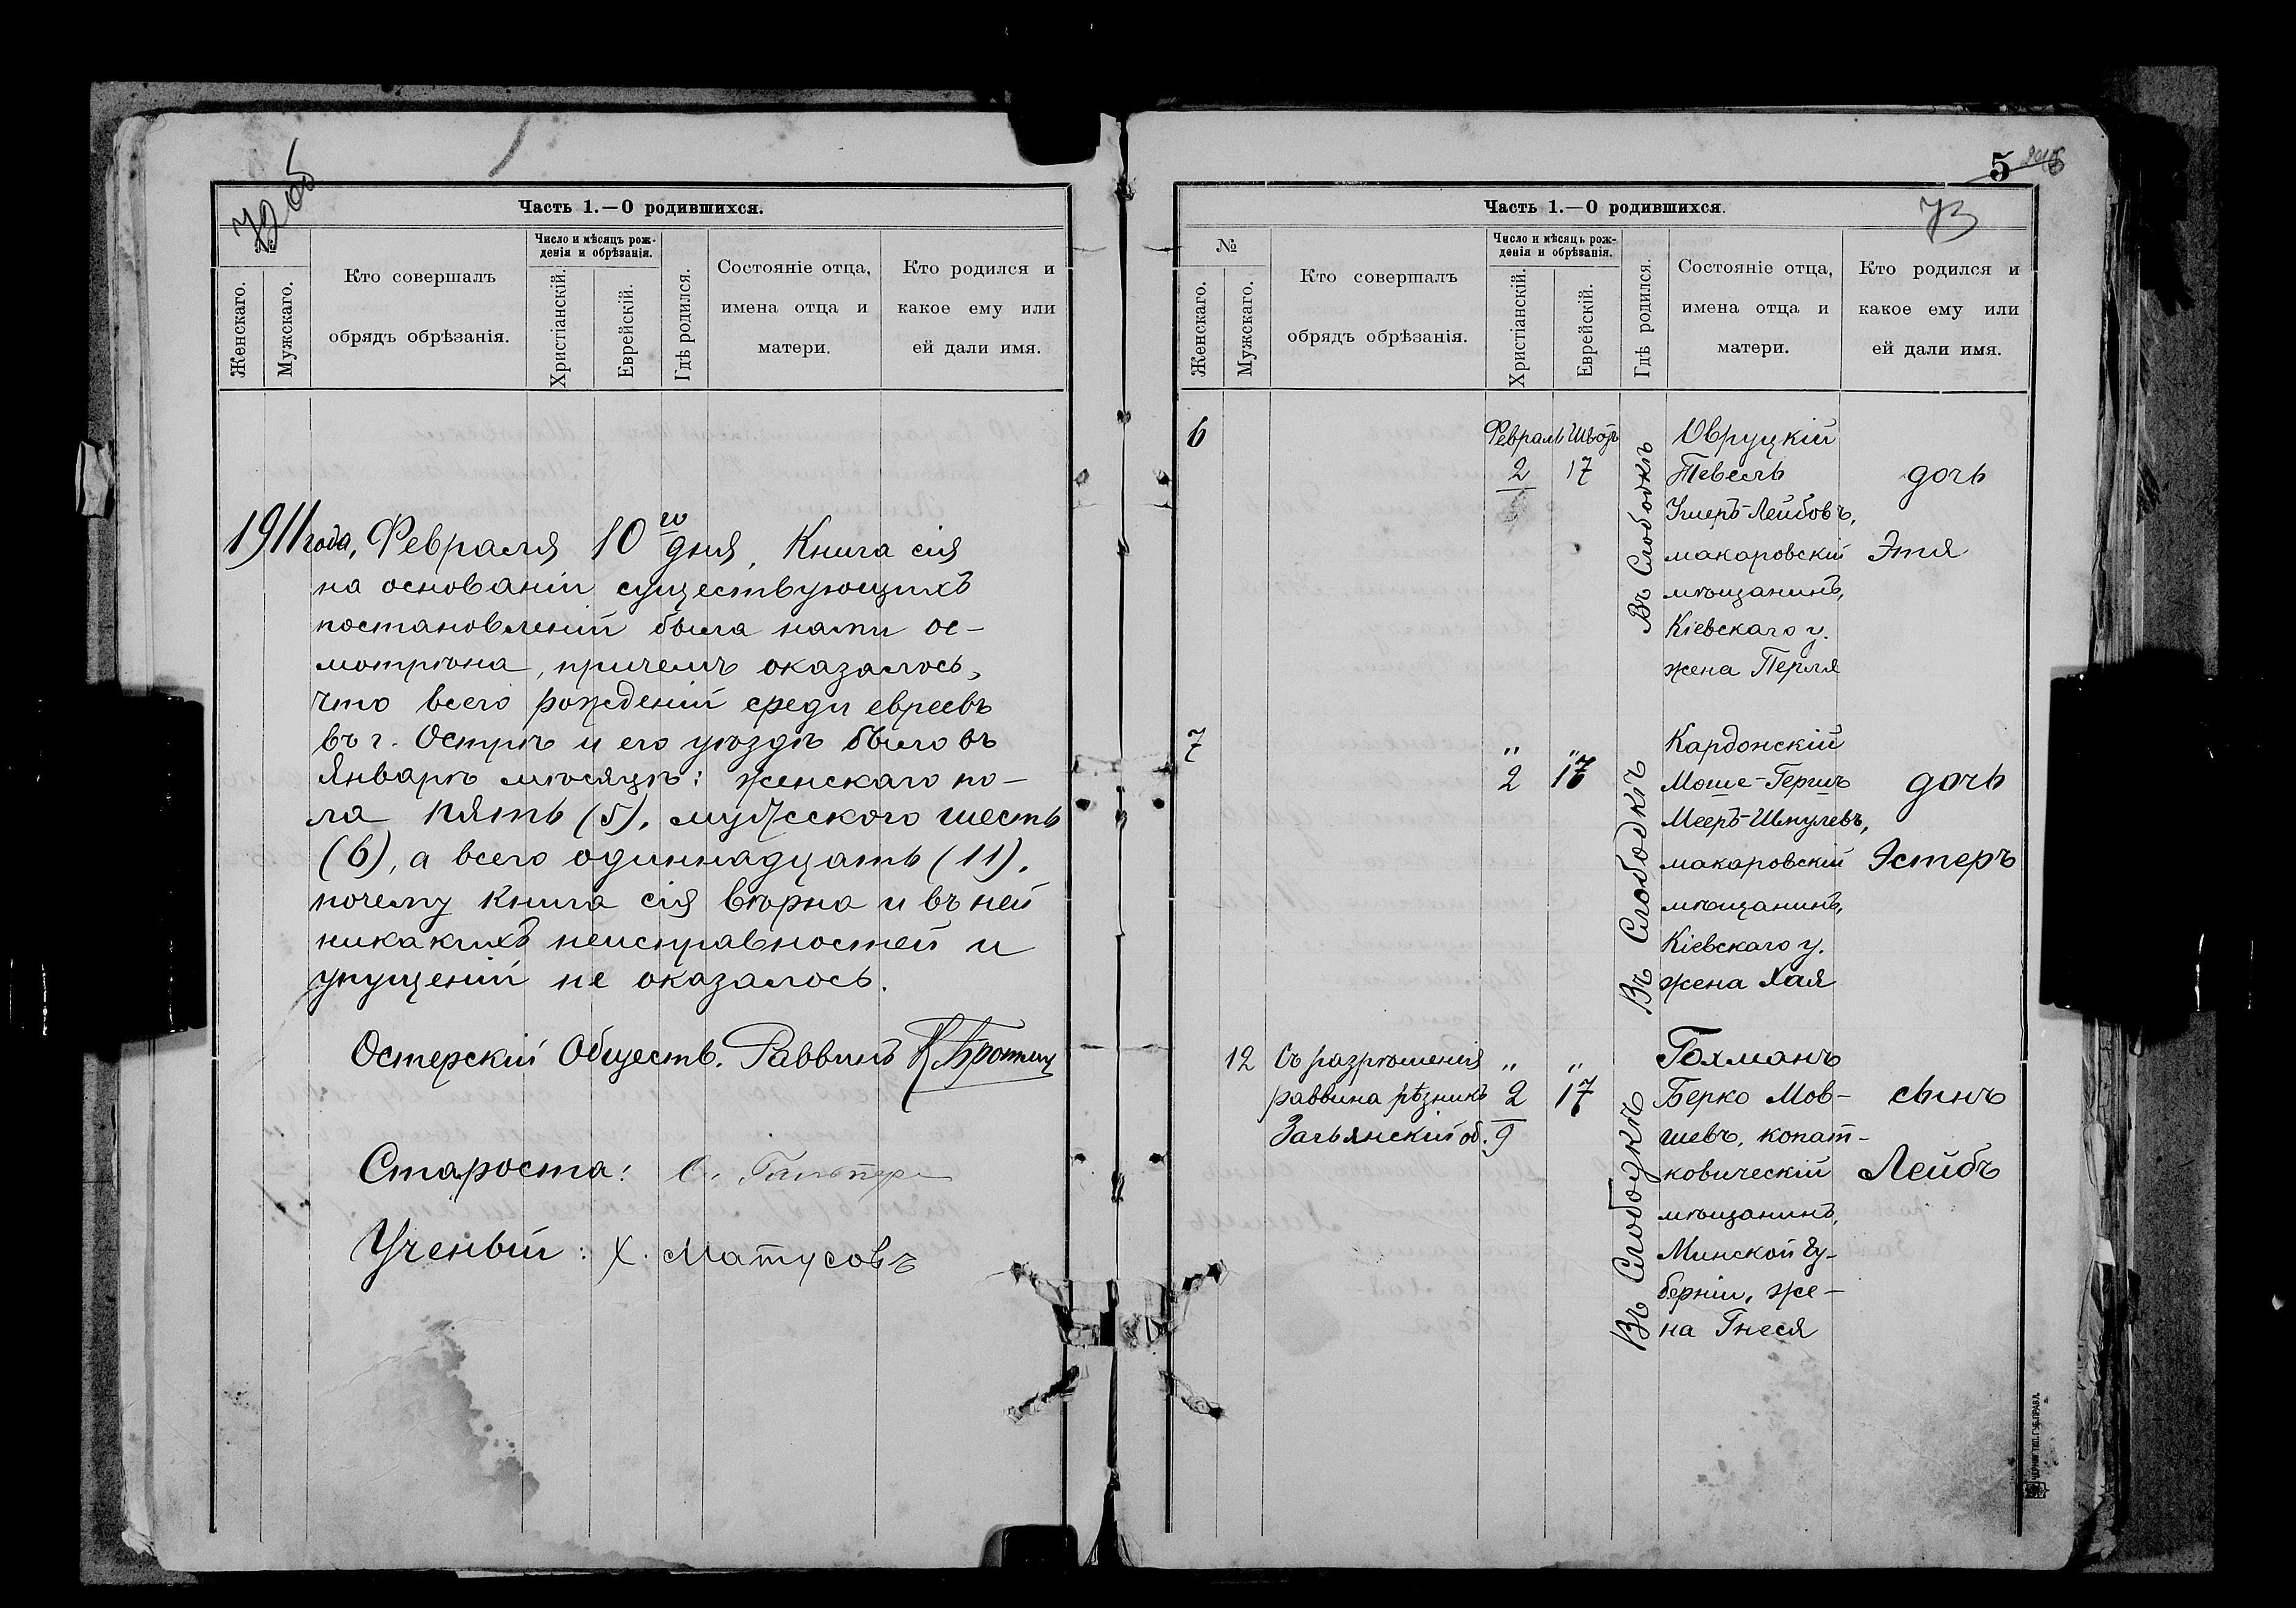 73 об
Часть 1.—О родившихся.
№
Женскаго.
Мужскаго.
Кто совершалъ
обрядъ обрѣзанія.
Число и мѣсяцъ рож-
денія и обрѣзанія.
Христіанскій.
Еврейскій.
Гдѣ родился.
Состояніе отца,
имена отца и
матери.
Кто родился и
какое ему или
ей дали имя.
1911 года, Февраля 10 го дня, Книга сія
на основаніи существующихъ
постановленій была нами ос-
мотрѣна, причемъ оказалось,
что всего рожденій среди евреевъ
въ г. Острѣ и его уѣздѣ было въ
Январѣ мѣсяцѣ: женскаго по-
ла пять (5), мужеского шесть
(6), а всего одиннадцать (11),
почему книга сія вѣрна и въ ней
никакихъ неисправностей и
упущеній не оказалось.
Остерскій Обществ. Раввинъ
Староста:
Ученый: Х. Матусовъ
5
73
Часть 1.—О родившихся.
№
Женскаго.
Мужскаго.
Кто совершалъ
обрядъ обрѣзанія.
Число и мѣсяцъ рож-
денія и обрѣзанія.
Христіанскій.
Еврейскій.
Гдѣ родился.
Состояніе отца,
имена отца и
матери.
Кто родился и
какое ему или
ей дали имя.
6 Февраль Шводъ Овруцкій
2 17 Тевель дочь
Умеръ-Лейбовъ,
макаровскій Этя
мѣщанинъ,
Кіевскаго у.
жена Перля
Въ Слободкѣ
7 " " Кардонскій
2 17 Моше-Гершъ дочь
Мееръ-Шмулевъ,
макаровскій Эстеръ
мѣщанинъ,
Кіевскаго у.
жена Хая
Въ Слободкѣ
12 Съ разрѣшенія " " Гохманъ
раввина рѣзникъ 2 17 Берко Мов- сынъ
Зачьянскій об. 9 шевъ, копат-
ковическій Лейбъ
мѣщанинъ,
Минской гу-
берніи, же-
на Гнеся
Въ Слободкѣ